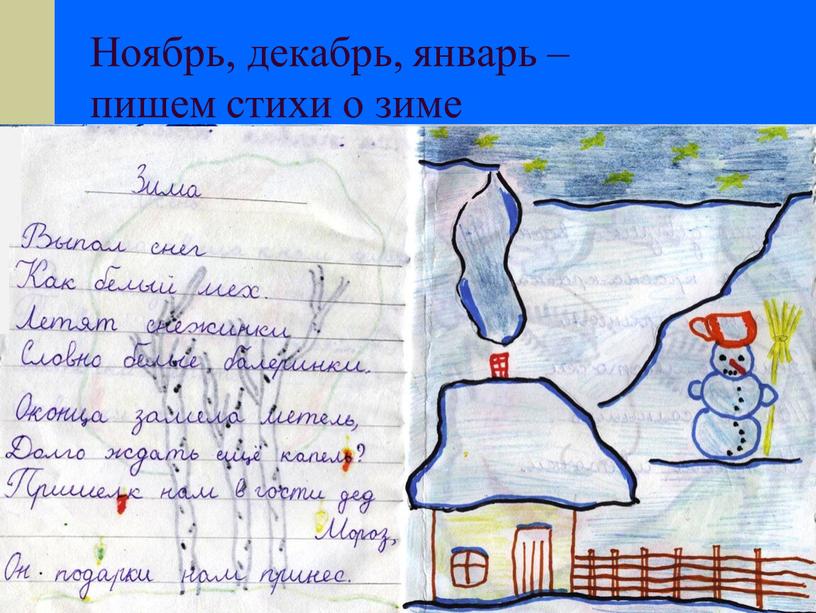 Ноябрь, декабрь, январь –
пишем стихи о зиме
Зима
Выпал снег
Как белый мех.
Летят снежинки
Словно белые балеринки.
Оконца замела метель,
Долго ждать ещё капель?
Пришел к нам в гости дед
Мороз,
Он подарки нам принес.